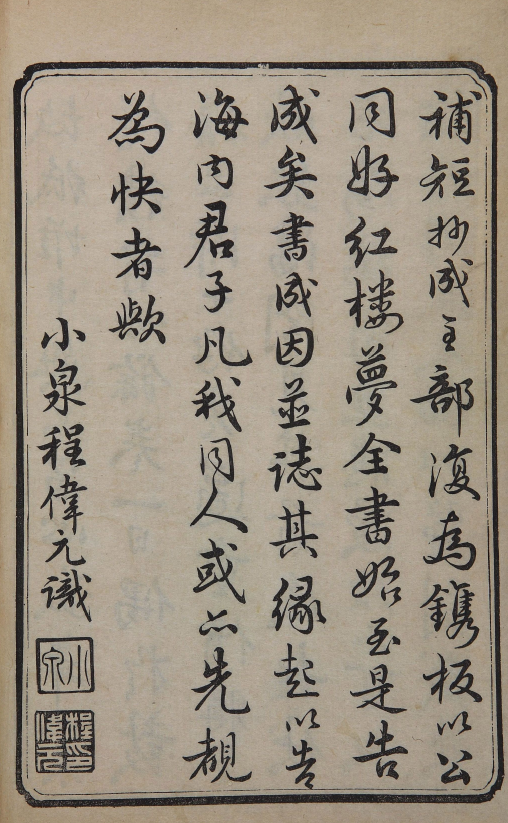 補短抄成全部復為鐫板以公
同好紅樓夢全書始至是告
成矣書成因並誌其緣起以告
海内君子凡我同人或亦先覩
為快者歟
小泉程偉元識
小泉
程偉元印